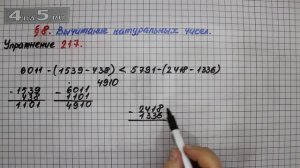 4u5.ru
§8. Вычитание натуральных чисел.
Упражнение 217.
6011-(1539-438) < 5791-(2418-1336)
4910
- 1539
438
1101
- 6011
1101
4910
- 2418
1336